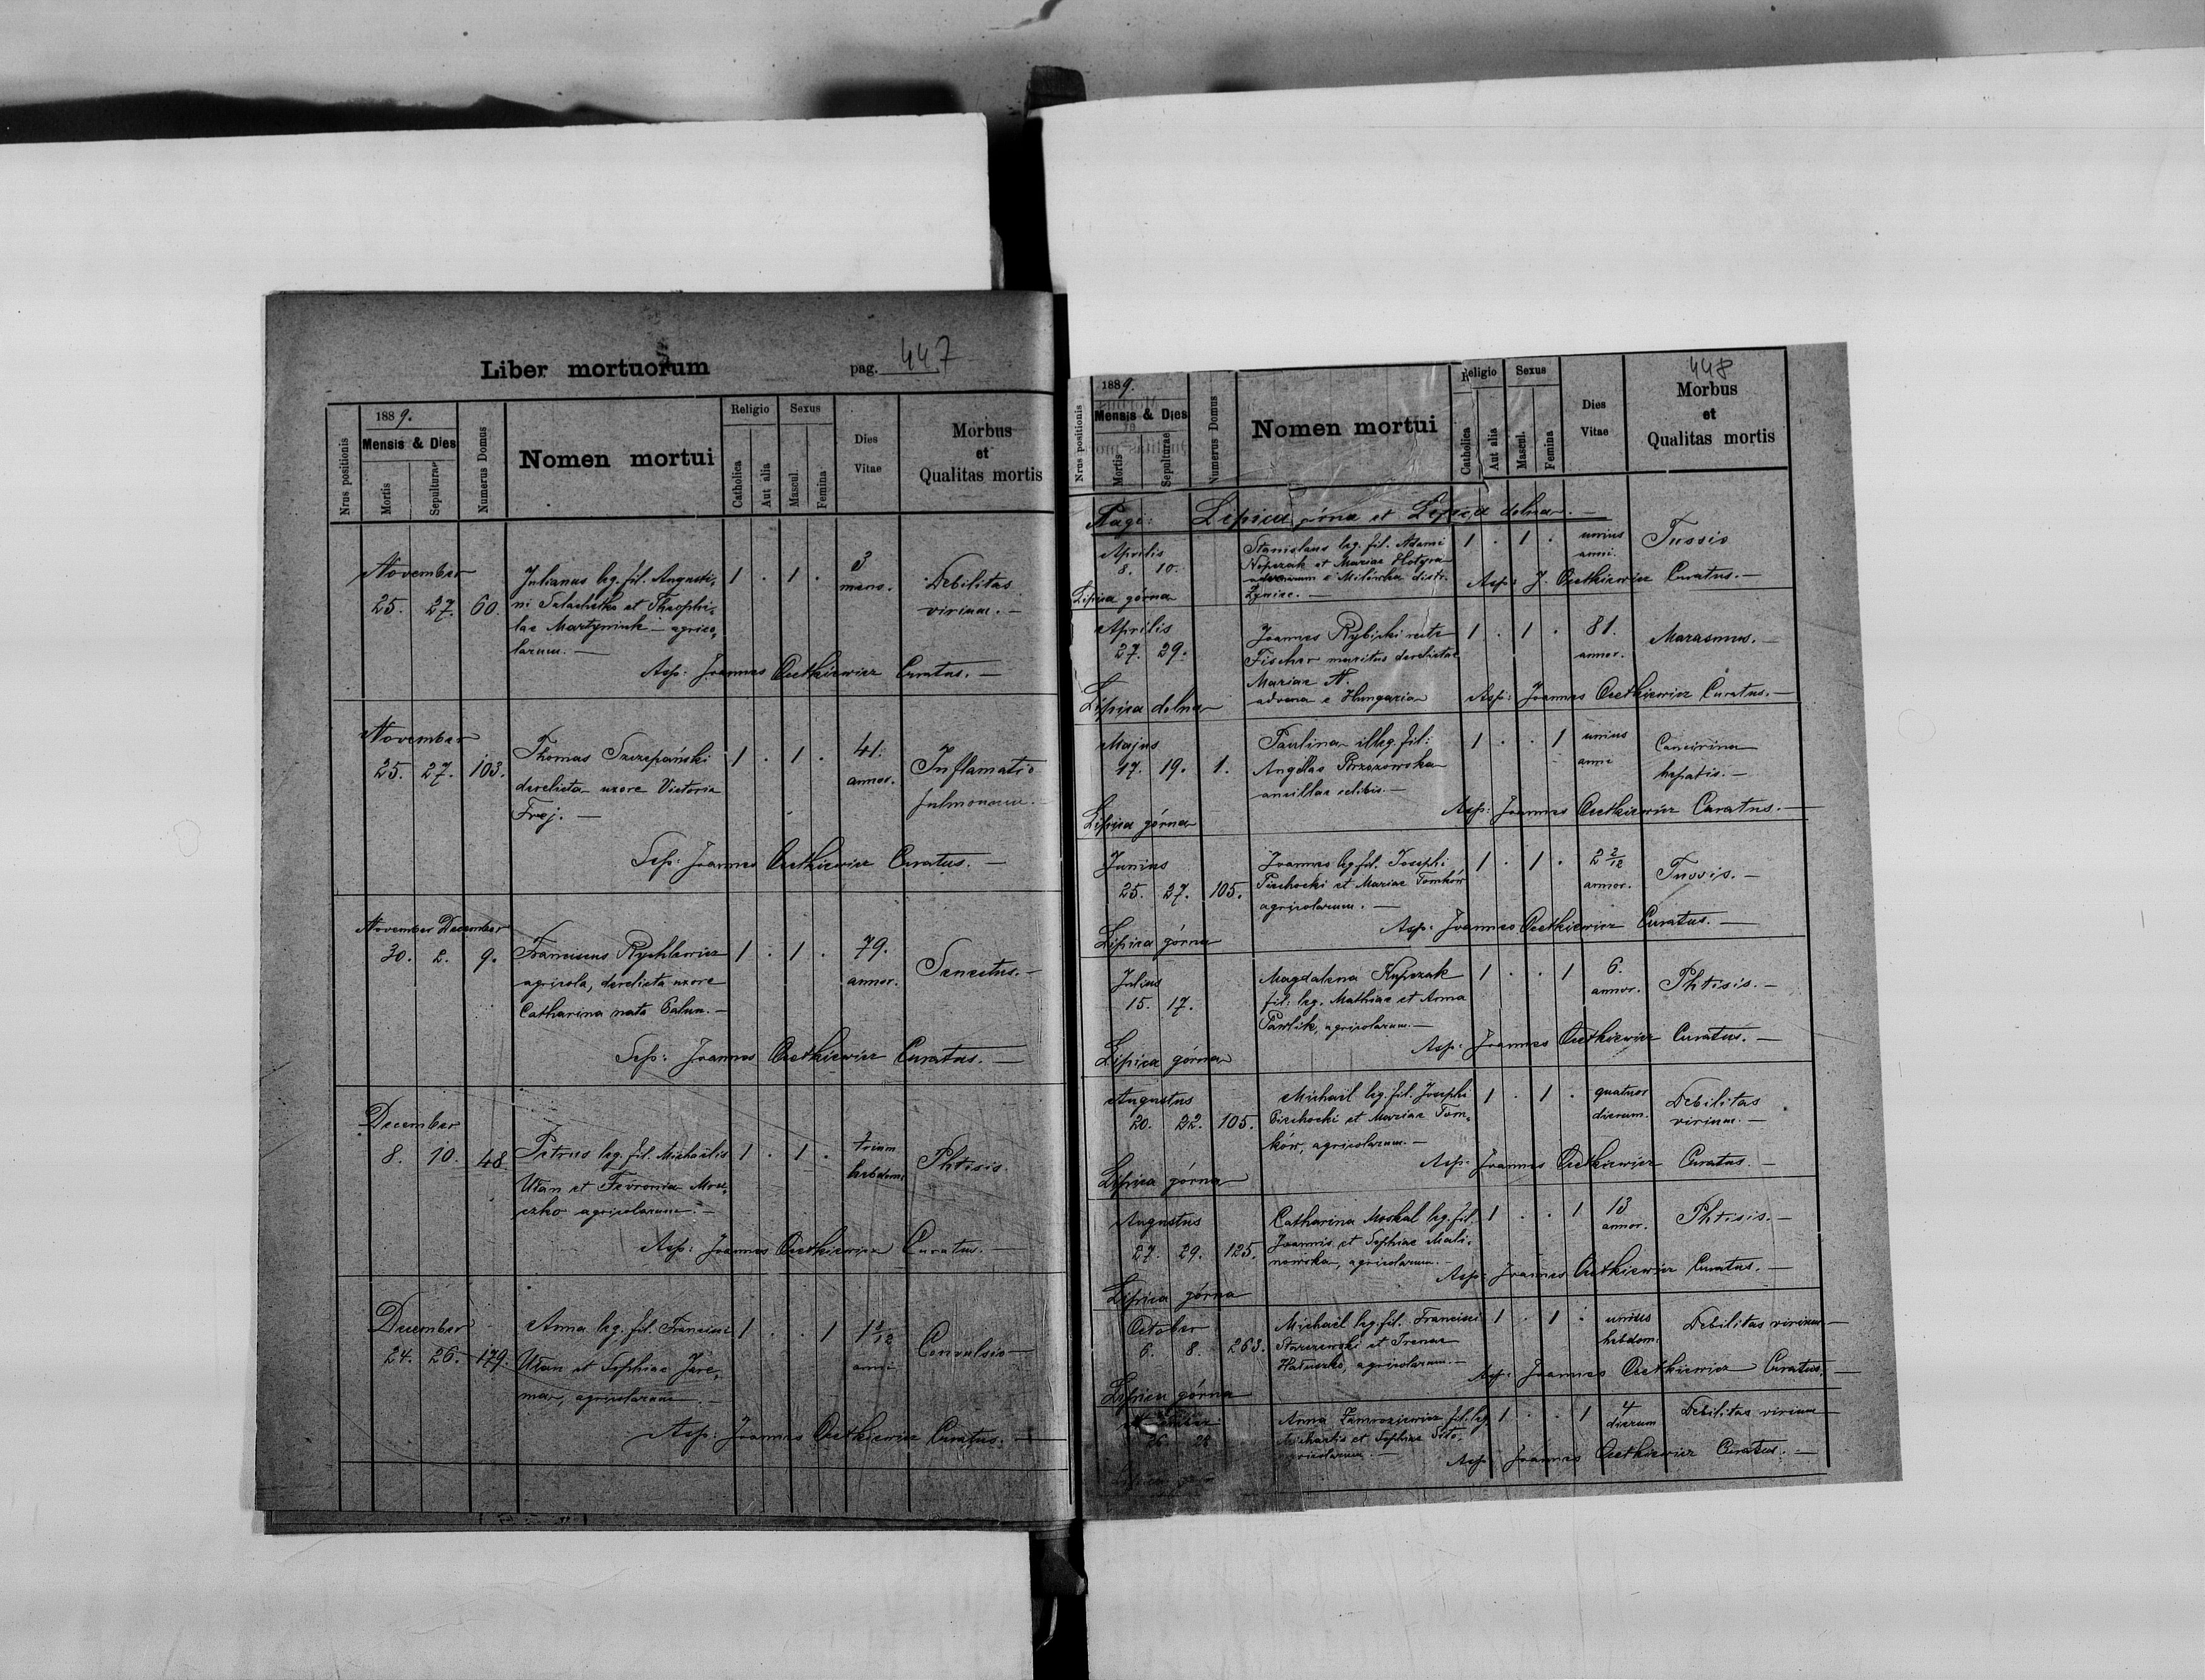 Liber mortuorum pag. 447
Nrus positionis
1889.
Mensis & Dies
Mortis
Sepulturae
Numerus Domus
Nomen mortui
Religio
Catholica
Aut alia
Sexus
Mascul.
Femina
Dies
Vitae
Morbus
et
Qualitas mortis
November
25. 27. 60.
Julianus leg. fil. Augusti,
ni et Theophi,
lae Martyniuk – agrico,
larum. –
1 . 1 .
3
mens.
Debilitas
virium. –
Asp: Joannes Cretkiewicz Curatus. –
November
25. 27. 103.
Thomas Szczepański
derelicta uxore Victoria
Frej. –
1 . 1 .
41.
annor.
Inflamatio
pulmonum. –
Sep: Joannes Cretkiewicz Curatus. –
November December
30. 2. 9.
Franciscus Rychlewicz
agricola, derelicta uxore
Catharina nata –
1 . 1 .
79.
annor.
Senectus. –
Sep: Joannes Cretkiewicz Curatus. –
December
8. 10. 48.
Petrus leg. fil. Michaëlis
Ułan et Fevronia
agricolarum. –
1 . 1 .
trium
hebdom.
Phtisis.
Asp: Joannes Cretkiewicz Curatus. –
December
24. 26. 179.
Anna leg. fil. Francisci
Ułan et Sophiae Jare,
mar, agricolarum. –
1 . . 1
anni
Convulsio –
Asp: Joannes Cretkiewicz Curatus. –
448
Nrus positionis
1889.
Mensis & Dies
Mortis
Sepulturae
Numerus Domus
Nomen mortui
Religio
Catholica
Aut alia
Sexus
Mascul.
Femina
Dies
Vitae
Morbus
et
Qualitas mortis
Pagi: Lipica górna et Lipica dolna. –
Aprilis
8. 10.
Stanislaus leg. fil. Adami
et Mariae
e Milówka distr.
Żywiec. –
1 . 1 .
unius
anni.
Tussis
Asp: J. Cretkiewicz Curatus. –
Lipica górna
Aprilis
27. 29.
Joannes Rybicki recte
Fischer maritus derelictae
Mariae N.
advena e Hungaria
1 . 1 .
81.
annor.
Marasmus. –
Asp: Joannes Cretkiewicz Curatus. –
Lipica dolna
Majus
17. 19. 1.
Paulina illeg. fil:
Angellae Brzozowska
ancillae celibis. –
1 . . 1
unius
anni
hepatis. –
Asp: Joannes Cretkiewicz Curatus. –
Lipica górna
Junius
25. 27. 105.
Joannes leg. fil. Josephi
Piechocki et Mariae Tomków
agricolarum. –
1 . 1 .
2 2/12
annor.
Tussis. –
Asp: Joannes Cretkiewicz Curatus. –
Lipica górna
Julius
15. 17.
Magdalena Kupczak
fil: leg. Mathiae et Anna
Pawlik, agricolarum. –
1 . . 1
6.
annor.
Phtisis. –
Asp: Joannes Cretkiewicz Curatus. –
Lipica górna
Augustus
20. 22. 105.
Michael leg. fil. Josephi
Piechocki et Mariae Tom,
ków, agricolarum. –
1 . 1 .
quatuor
dierum.
Debilitas
virium. –
Asp: Joannes Cretkiewicz Curatus. –
Lipica górna
Augustus
27. 29. 125.
Catharina Moskal leg. fil.
Joannis et Sophiae Mali,
nowska, agricolarum. –
1 . . 1
13
annor.
Phtisis. –
Asp: Joannes Cretkiewicz Curatus. –
Lipica górna
October
6. 8. 263.
Michaël leg. fil. Francisci
et Irenae
agricolarum. –
1 . 1 .
unius
hebdom.
Debilitas virium –
Asp: Joannes Cretkiewicz Curatus. –
Lipica górna
26. 28
Anna Zamroziewicz fil. leg.
Michaelis et Sophiae
agricolarum –
1 . . 1
4
dierum
Debilitas virium
Asp: Joannes Cretkiewicz Curatus. –